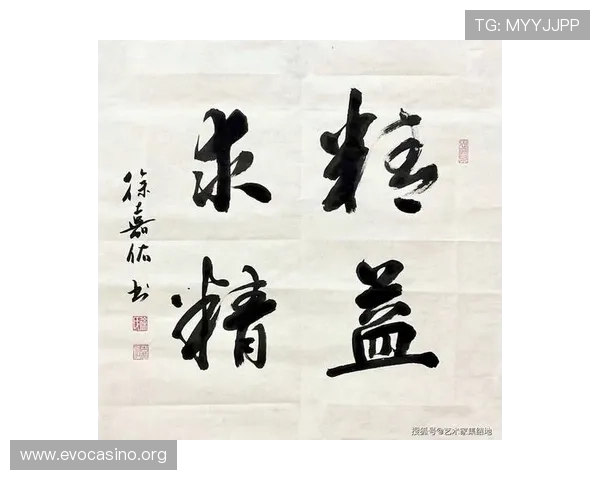 TG: MYYJJPP
精益
求精
徐嘉佑书
搜狐号@艺术家集结地
www.evocasino.org